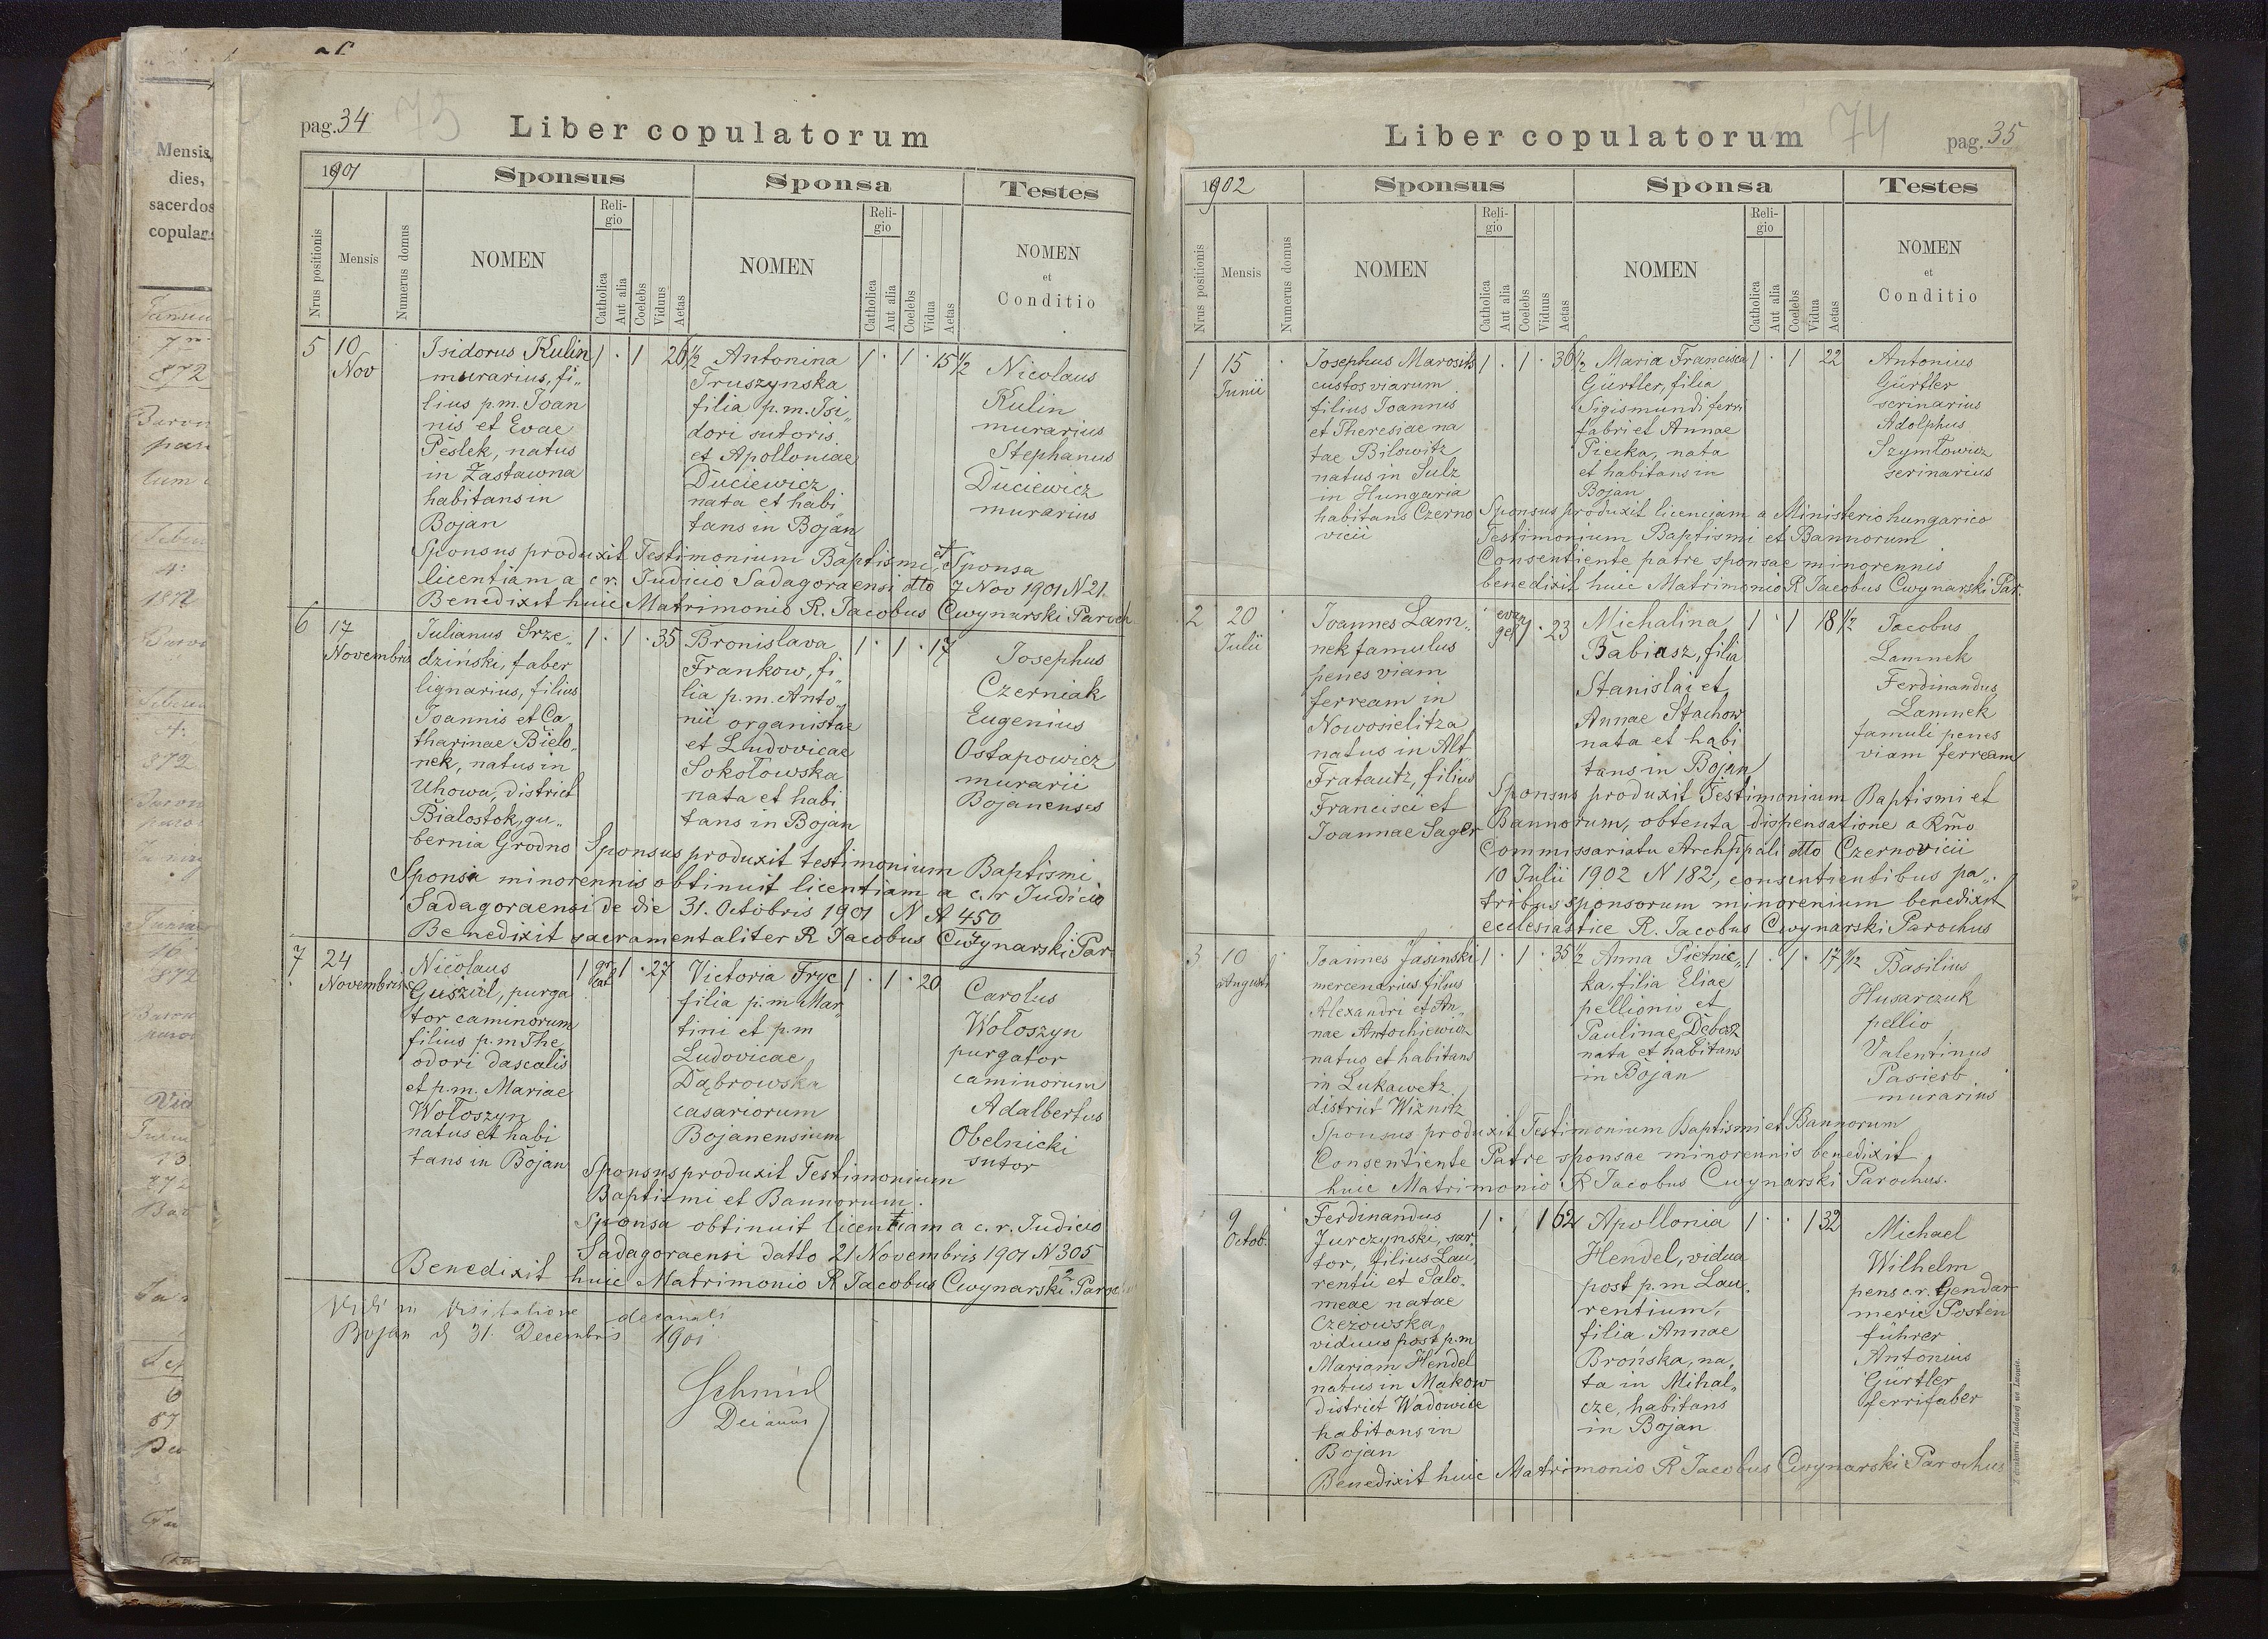 Mensis,
dies,
sacerdos
copulans
872
pag. 34
75
Liber copulatorum
1901
Sponsus
Sponsa
Testes
Nrus positionis
Mensis
Numerus domus
NOMEN
Religio
Catholica
Aut alia
Coelebs
Viduus
Aetas
NOMEN
Religio
Catholica
Aut alia
Coelebs
Vidua
Aetas
NOMEN
et
Conditio
5
10
Nov
Isidorus Kulin
murarius, fi„
lius p.m. Joan
nis et Evae
Peslek, natus
in Zastawna
habitans in
Bojan
1 . 1 26½
Antonina
Truszynska
filia p.m. Isi„
dori sutoris
et Apolloniae
Duciewicz
nata et habi„
tans in Bojan
1 . 1 . 15½
Nicolaus
Kulin
murarius
Stephanus
Duciewicz
murarius
Sponsus produxit Testimonium Baptismi, et Sponsa
licentiam a c.r. Judicio Sadagoraensi dtto 7 Nov 1901 N 21.
Benedixit huic Matrimonio R. Jacobus Cwynarski Paroch
6
17
Novembris
Julianus Srze„
dziński, faber
lignarius, filius
Joannis et Ca„
tharinae Bielo„
nek, natus in
Uhowa, district
Bialostok, gu„
bernia Grodno
1 . 1 . 35
Bronislava
Frankow, fi„
lia p.m. Anto„
nii organistae
et Ludovicae
Sokołowska
nata et habi
tans in Bojan
1 . 1 . 17
Josephus
Czerniak
Eugenius
Ostapowicz
murarii
Bojanenses
Sponsus produxit testimonium Baptismi
Sponsa minorennis obtinuit licentiam a c.r Judicio
Sadagoraensi de die 31. Octobris 1901 N A 450
Benedixit sacramentaliter R Jacobus Cwynarski Par.
7
24
Novembris
Nicolaus
Guszul, purga
tor caminorum
filius p.m The„
odori dascalis
et p.m. Mariae
Wołoszyn
natus et habi
tans in Bojan
1 gr cat 1 . 27
Victoria Fryc
filia p.m Mar„
tini et p.m
Ludovicae
Dąbrowska
casariorum
Bojanensium
1 . 1 . 20
Carolus
Wołoszyn
purgator
caminorum
Adalbertus
Obelnicki
sutor
Sponsus produxit Testimonium
Baptismi et Bannorum.
Sponsa obtinuit licentiam a c.r. Judicio
Sadagoraensi datto 21 Novembris 1901 N 305
Benedixit huic Matrimonio R Jacobus Cwynarski Paroch
Vidi in Visitatione decanali
Bojan d 31. Decembris 1901
Schmid
Decanus
74
Liber copulatorum
pag. 35
1902
Sponsus
Sponsa
Testes
Nrus positionis
Mensis
Numerus domus
NOMEN
Religio
Catholica
Aut alia
Coelebs
Viduus
Aetas
NOMEN
Religio
Catholica
Aut alia
Coelebs
Vidua
Aetas
NOMEN
et
Conditio
1
15
Junii
Josephus Marosits
custos viarum
filius Joannis
et Theresiae na
tae Bilowitz
natus in Sulz
in Hungaria
habitans Czerno
vicii
1 . 1 . 30½
Maria Francisca
Gürtler, filia
Sigismundi ferri
fabri et Annae
Piecka, nata
et habitans in
Bojan
1 . 1 22
Antonius
Gürtler
scrinarius
Adolphus
Szymłowicz
scrinarius
Sponsus produxit licenciam a Ministerio hungarico
Testimonium Baptismi et Bannorum
Consentiente patre sponsae minorennis
benedixit huic Matrimonio R Jacobus Cwynarski Par.
2
20
Julii
Joannes Lam„
nek famulus
penes viam
ferream in
Nowosielitza
natus in Alt
Fratautz, filius
Francisci et
Joannae Sager
evan gel 1 . 23
Michalina
Babiasz, filia
Stanislai et
Annae Stachow
nata et habi
tans in Bojan
1 . 1 18½
Jacobus
Lamnek
Ferdinandus
Lamnek
famuli penes
viam ferream
Sponsus produxit Testimonium Baptismi et
Bannorum, obtenta dispensatione a Rmo
Commissariatu Archppali dtto Czernovicii
10 Julii 1902 N 182, consentientibus pa„
tribus sponsorum minorenium benedixit
ecclesiastice R. Jacobus Cwynarski Parochus
3
10
Augusti
Joannes Jasinski
mercenarius filius
Alexandri et An„
nae Antochjewicz
natus et habitans
in Lukawetz
district Wiznitz
1 . 1 . 35½
Anna Pietnic„
ka, filia Eliae
pellionis et
Paulinae Debosz
nata et habitans
in Bojan
1 . 1 . 17½
Basilius
Husarczuk
pellio
Valentinus
Pasierb
murarius
Sponsus produxit Testimonium Baptismi et Bannorum
Consentiente Patre sponsae minorennis benedixit
huic Matrimonio R Jacobus Cwynarski Parochus.
9
Octob.
Ferdinandus
Jurczynski, sar„
tor, filius Lau„
rentii et Salo„
meae natae
Czezowska,
viduus post p.m
Mariam Hendel
natus in Makow
district Wadowice
habitans in
Bojan
1 . 1 62
Apollonia
Hendel, vidua
post p.m Lau„
rentium,
filia Annae
Brońska, na„
ta in Mihal„
cze, habitans
in Bojan
1 . . 1 32
Michael
Wilhelm
pens c.r. Gendar
merie Posten
führer
Antonius
Gürtler
ferrifaber
Benedixit huic Matrimonio R Jacobus Cwynarski Parochus
Z drukarni Ludowej we Lwowie.